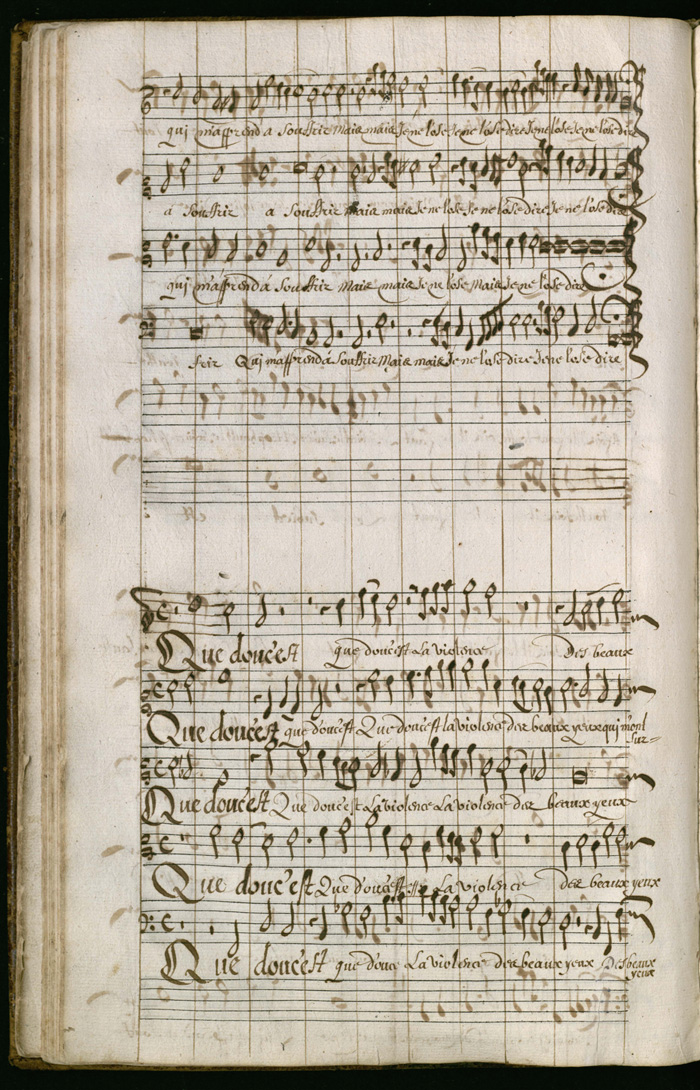 qui m'apprend a Souffrir Mais mais Je ne lose Je ne lose dire Je ne lose Je ne lose dire
a Souffrir a Souffrir Mais mais Je ne lose Je ne lose dire Je ne lose dire
qui m'apprend a Souffrir Mais mais Je ne lose Mais Je ne lose dire
frir Qui m'apprend a Souffrir Mais mais Je ne lose dire Je ne lose dire
Que douc'est que douc'est La violence Des beaux
Que douc'est que douc'est Que douc'est la violence des beaux yeux qui m'ont
sur=
Que douc'est Que douc'est La violence La violence des beaux yeux
Que douc'est Que douc'est La violence des beaux yeux
Que douc'est que douc La violence des beaux yeux Des beaux
yeux